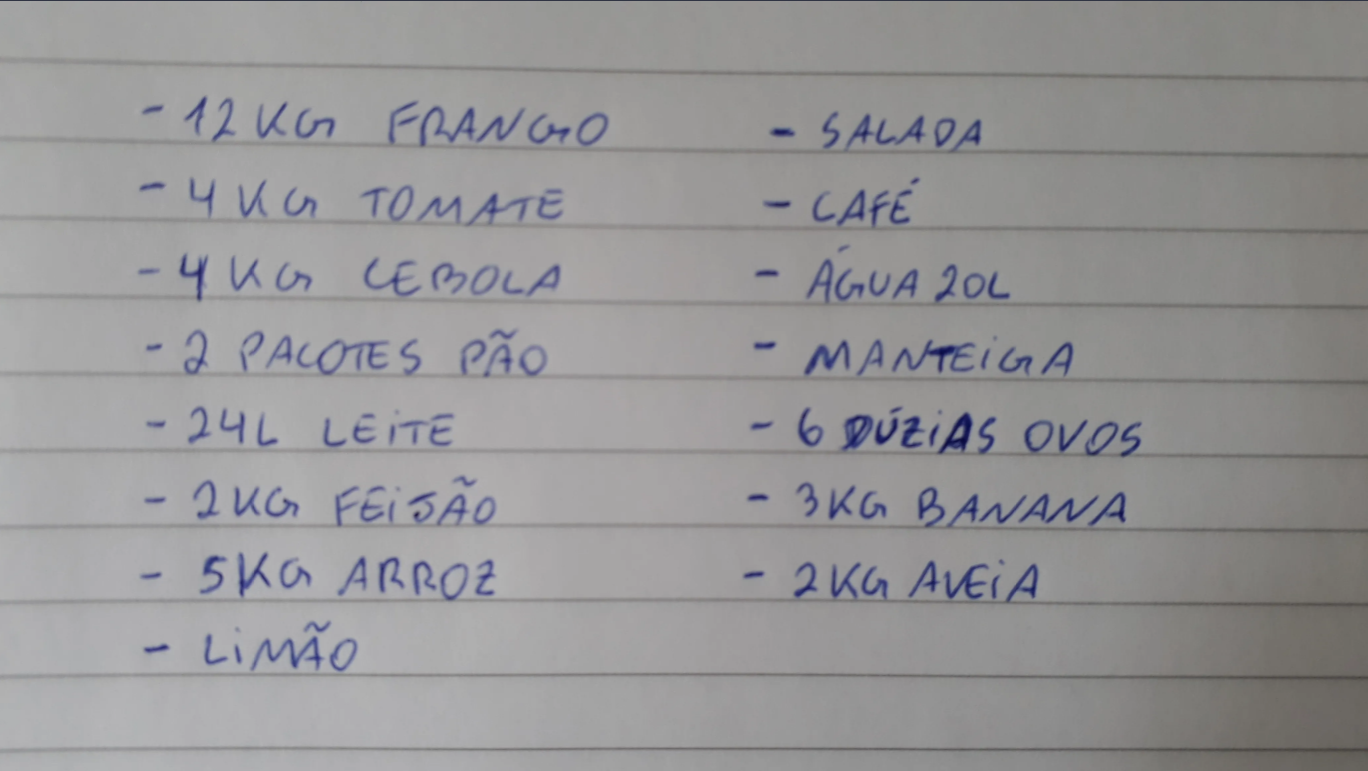 - 12KG FRANGO
- 4KG TOMATE
- 4KG CEBOLA
- 2 PACOTES PÃO
- 24L LEITE
- 2KG FEIJÃO
- 5KG ARROZ
- LIMÃO
- SALADA
- CAFÉ
- ÁGUA 20L
- MANTEIGA
- 6 DÚZIAS OVOS
- 3KG BANANA
- 2KG AVEIA